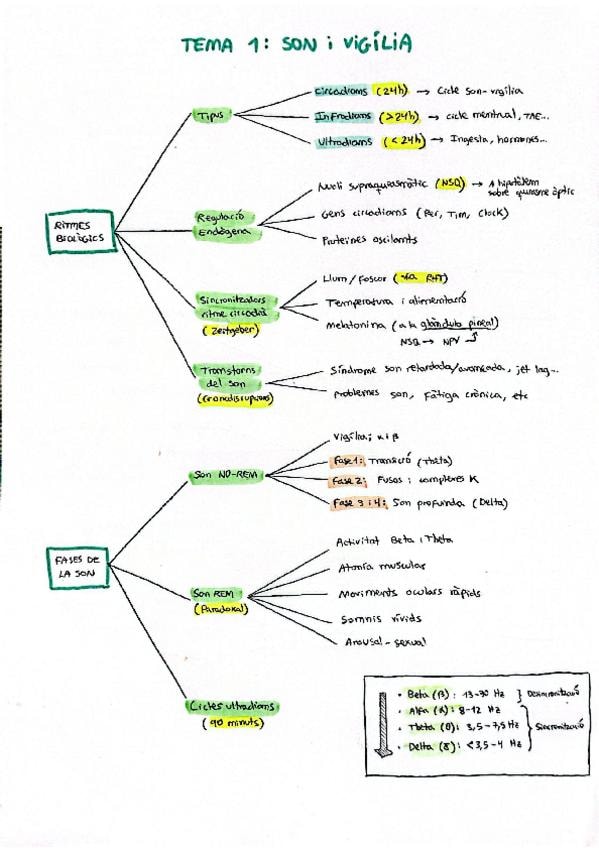 TEMA 1: SON i VIGÍLIA
RITMES
BIOLÒGICS
Tipus
Circadians (24h) → Cicle son-vigília
Infradians (>24h) → cicle menstrual, TAE...
Ultradians (<24h) → Ingesta, hormones...
Regulació
Endògena
Nucli supraquiasmàtic (NSQ) → A hipotàlem
sobre quiasme òptic
Gens circadians (Per, Tim, Clock)
Proteïnes oscilants
Sincronitzadors
ritme circadià
(Zeitgeber)
Llum/foscor (via RHT)
Temperatura i alimentació
Melatonina (a la glàndula pineal)
NSQ → NPV
Transtorns
del son
(Cronodisrupcions)
Síndrome son retardada/avançada, jet lag...
Problemes son, Fatiga crònica, etc
FASES DE
LA SON
Son NO-REM
Vigília: α i β
Fase 1: Transició (Theta)
Fase 2: Fusos i complexes K
Fase 3 i 4: Son profunda (Delta)
Son REM
(Paradoxal)
Activitat Beta i Theta
Atonia muscular
Moviments oculars ràpids
Somnis vívids
Arousal-sexual
Cicles ultradians
(90 minuts)
• Beta (β): 13-30 Hz } Desincronització
• Alfa (α): 8-12 Hz
• Theta (θ): 3,5-7,5 Hz } Sincronització
• Delta (δ): <3,5-4 Hz